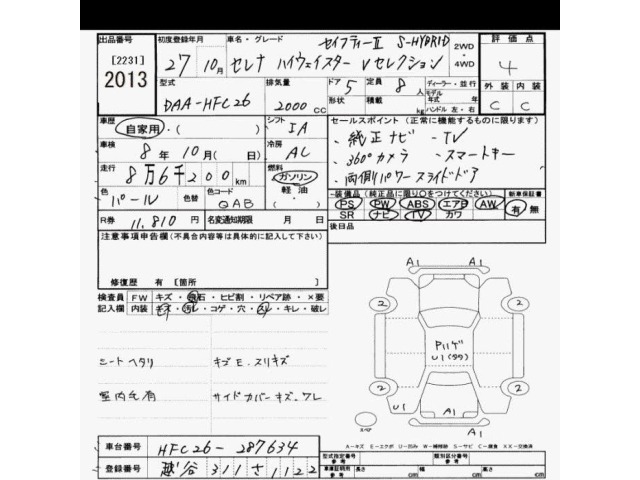 出品番号 [2231] 2013
初度登録年月 27年 10月
車名・グレード セレナ ハイウェイスター Vセレクション セイフティーⅡ S-HYBRID
2WD・4WD
評価点 4
外装 C 内装 C
型式 DAA-HFC26
排気量 2000 CC
ドア 5 形状
定員 8人 積載 kg
ディーラー・並行
モデル年式 年
ハンドル 左・右
車歴 自家用・( )
シフト IA
車検 8年 10月( 日)
冷房 AC
走行 8万6千200km
燃料 ガソリン 軽油
色 パール 色替
色コード QAB
R券 11,810円
名変通知期限 月 日
セールスポイント(正常に機能するものに限ります)
・純正ナビ ・TV
・360°カメラ ・スマートキー
・両側パワースライドドア
装備品(純正品に限り○をつけてください)
PS PW ABS エアB AW
SR ナビ TV カワ
新車保証書 有 無
後日品
注意事項申告欄(不具合内容等は具体的に記入して下さい)
修復歴 有 [箇所 ]
検査員記入欄 FW キズ・飛石・ヒビ割・リペア跡・×要
内装 キズ・汚レ・コゲ・穴・スレ・キレ・破レ
シートヘタリ キズE.スリキズ
室内毛有 サイドカバーキズ.ワレ
A1
A1
2 2
Pハゲ
U1(99)
2 2
U1 A1
A1
スペア
A-キズ E-エクボ U-凹み W-補修跡 S-サビ C-腐食 XX-交換済
車台番号 HFC26-287634
登録番号 越谷 311 さ 1122
型式指定番号 参考 類別区分番号 参考
車庫証明用 参考 長さ cm 幅 cm 高さ cm